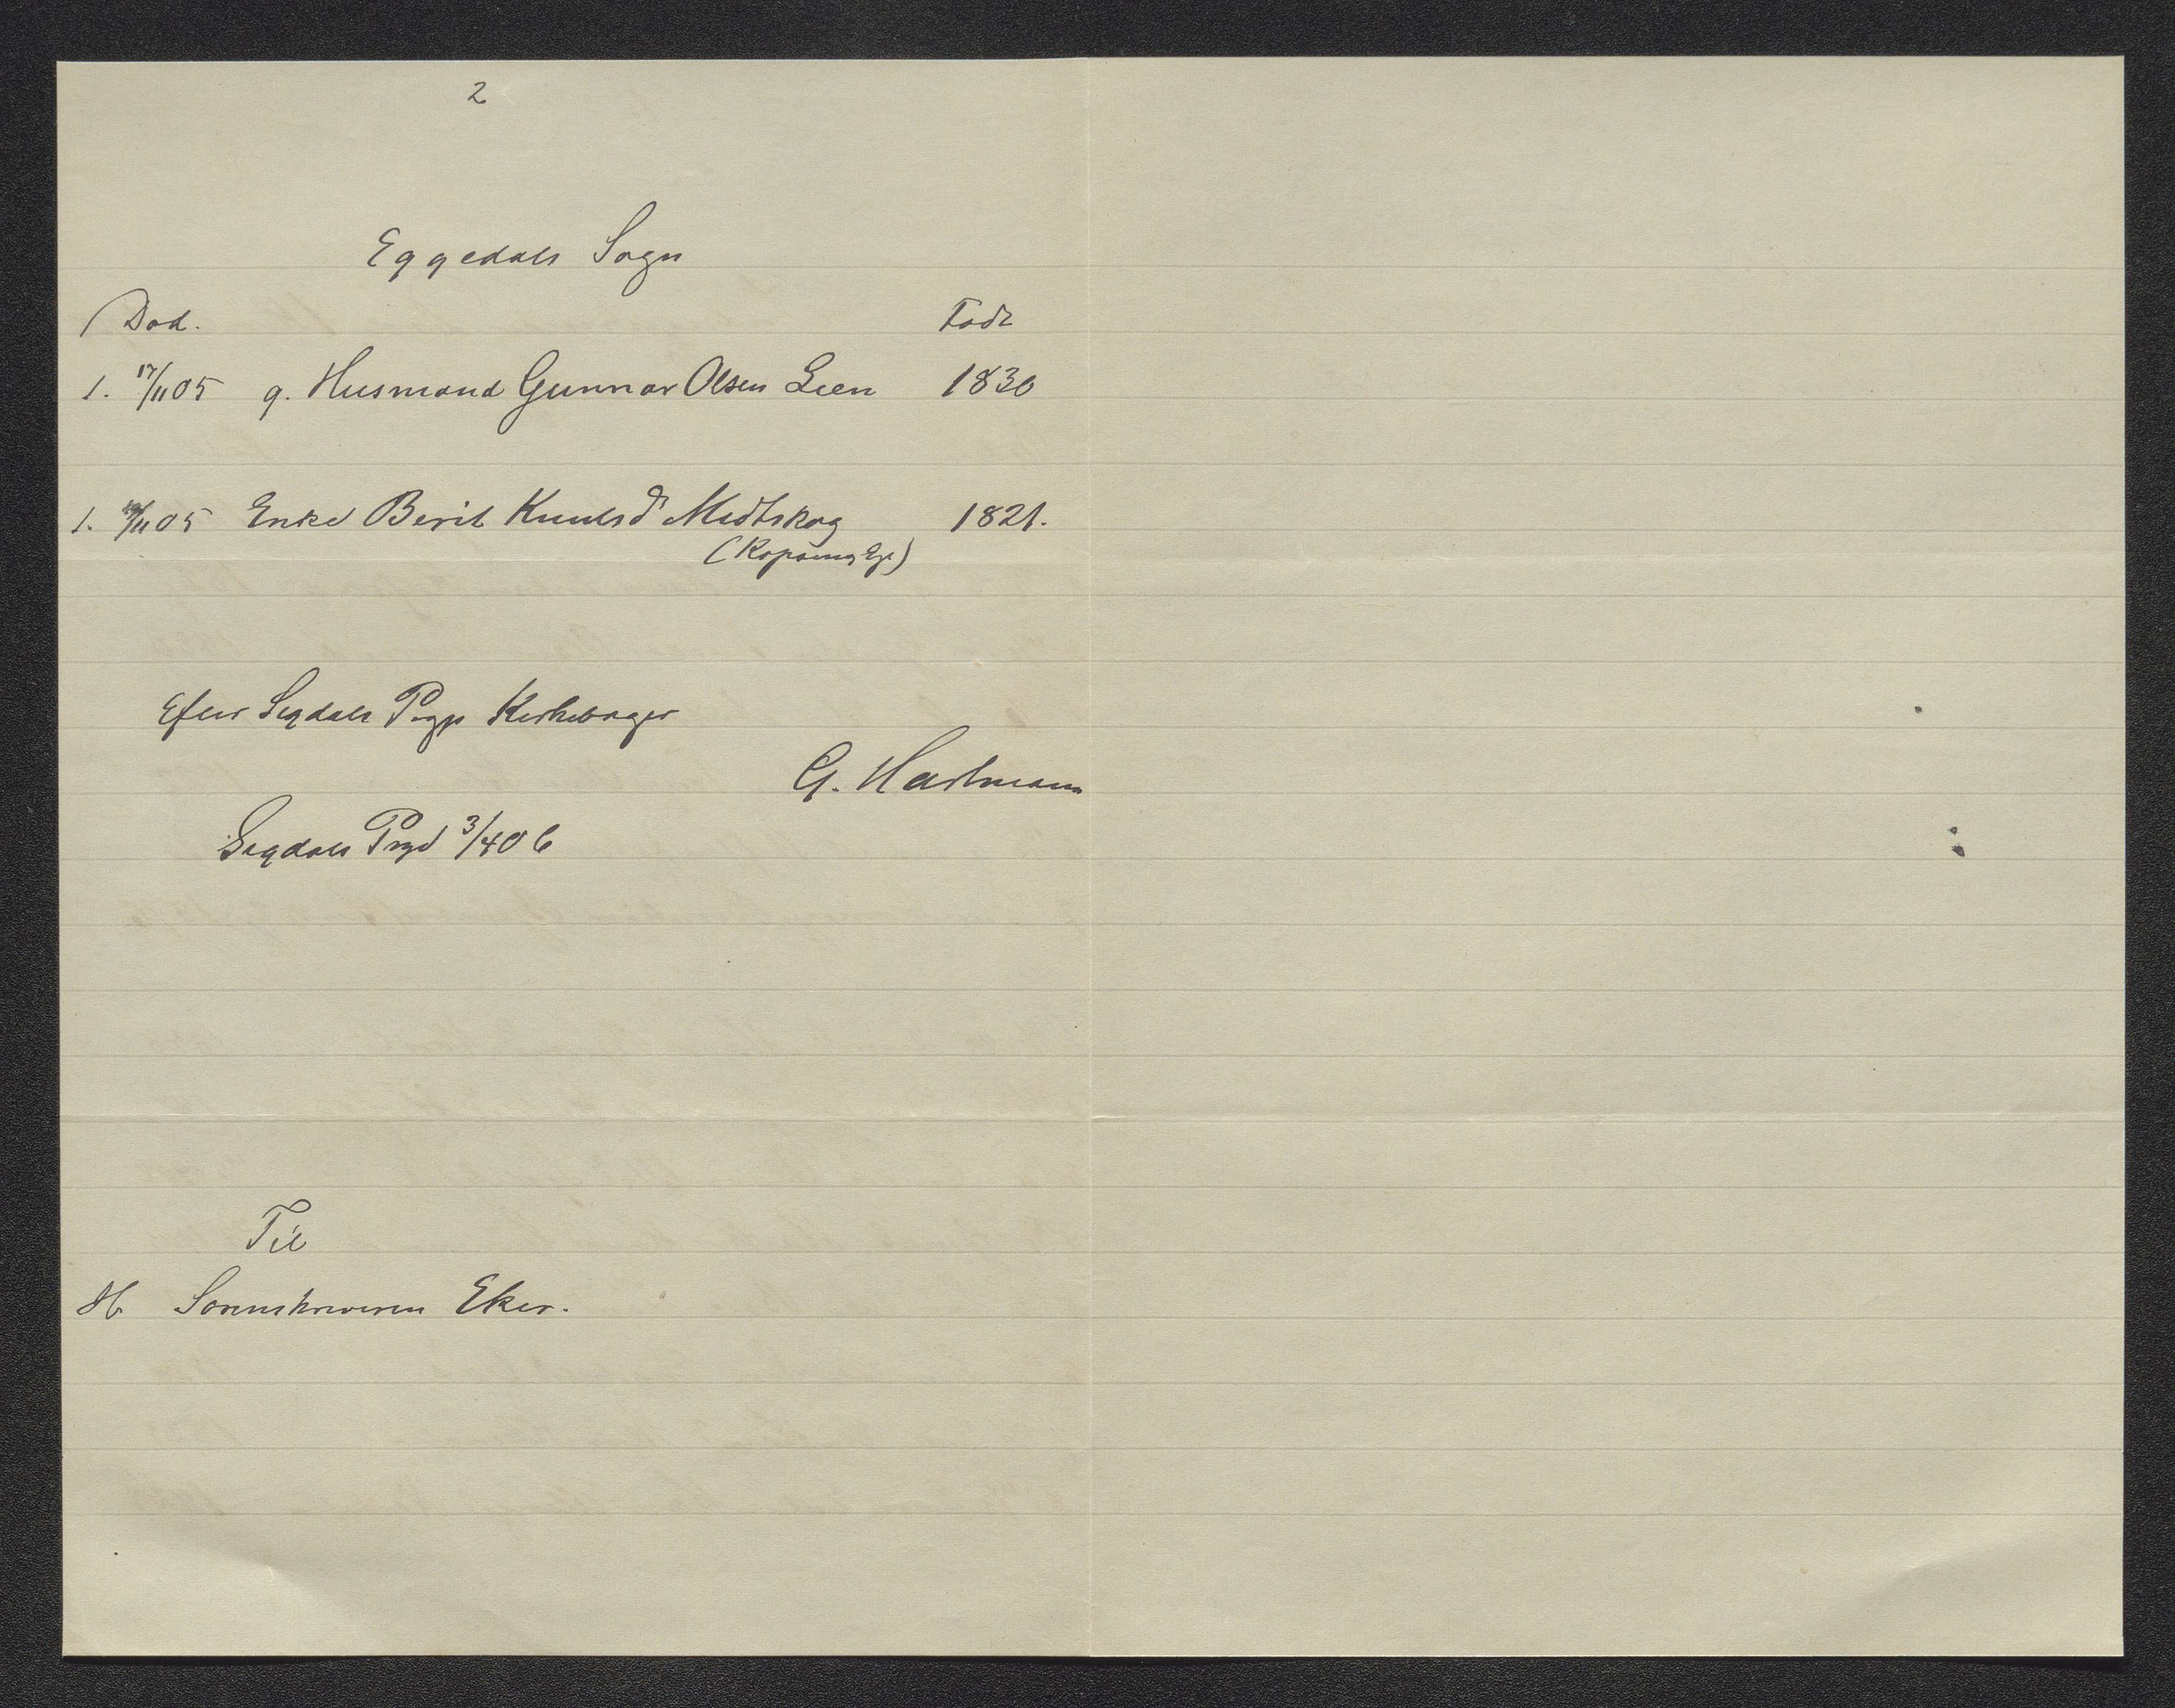 2
Eggedals Sogn
Død. Født
1. 17/11 05 g. Husmand Gunnar Olsen Lien 1830
1. /11 05 Enke Berit Knutsdr Midtskog 1821.
Efter Sigdals Prgjs Kirkebøger
G. Hartmann
Sigdals Prgd 3/4 06
Til
Hr Sorenskriveren Eker.